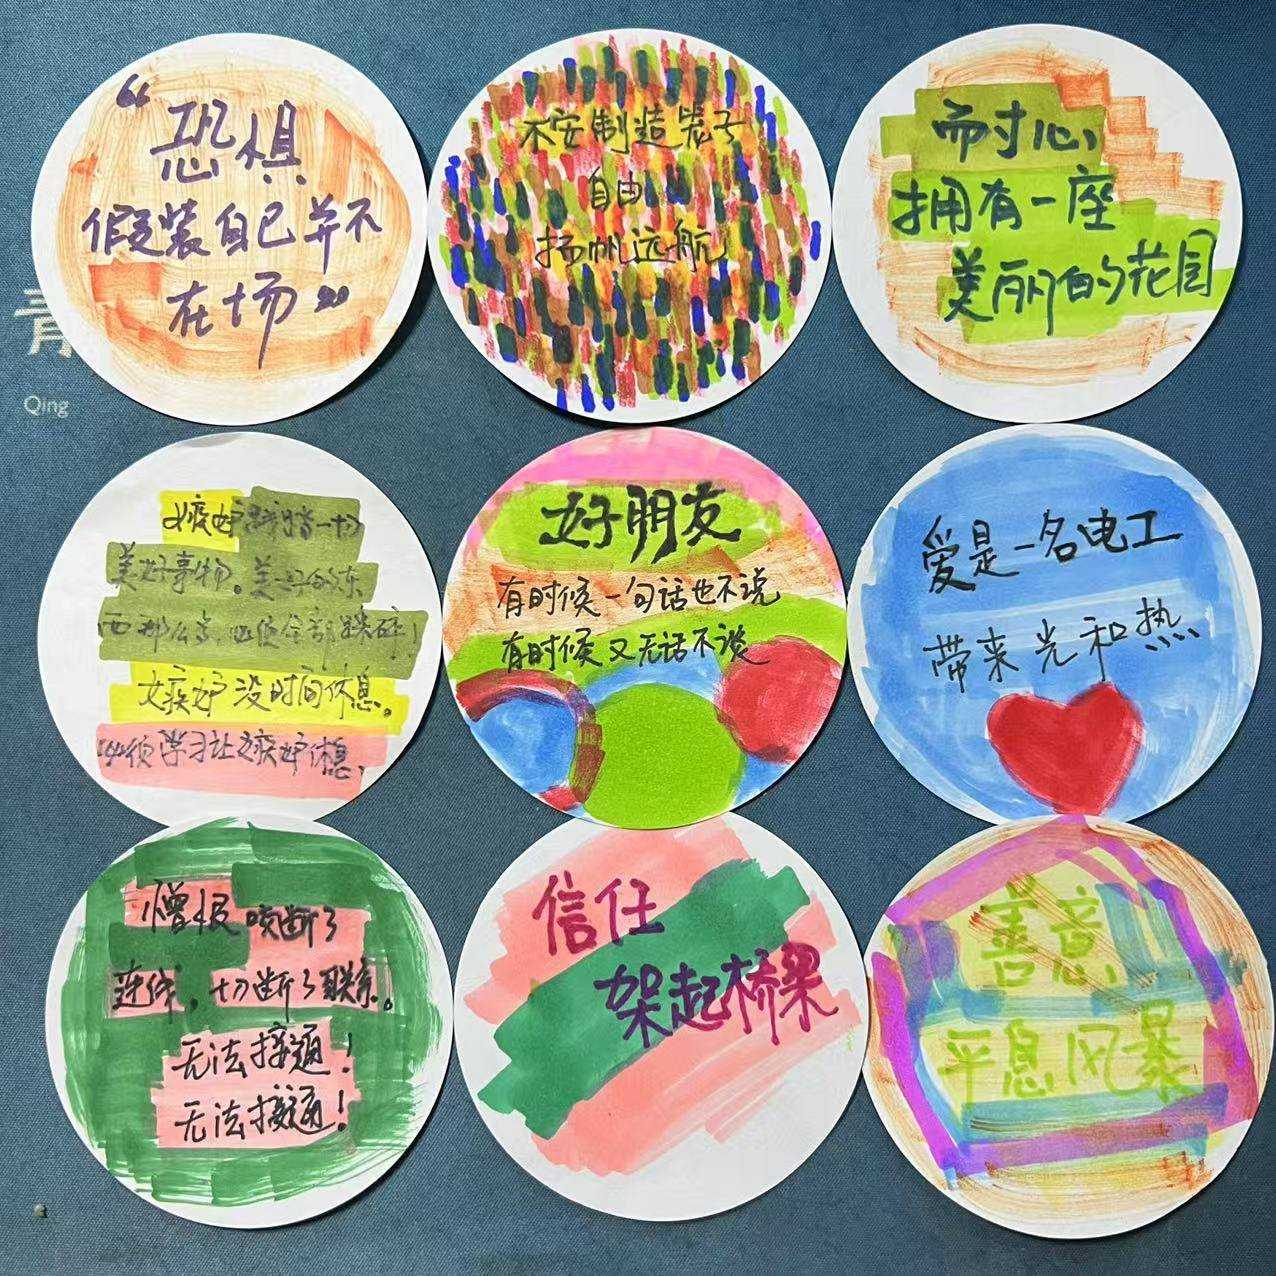 “恐惧
假装自己并不
在场”
不安制造袋子
自由
扬帆远航
耐心
拥有一座
美丽的花园
青
Qing
嫉妒践踏一切
美好事物。美好的东
西那么高,也使全部跌碎!
嫉妒没时间休息。
必须学习让嫉妒休息,
好朋友
有时候一句话也不说
有时候又无话不谈
爱是一名电工
带来光和热
憎恨咬断了
连线,切断了联系。
无法接通!
无法接通!
信任
架起桥梁
善意
平息风暴